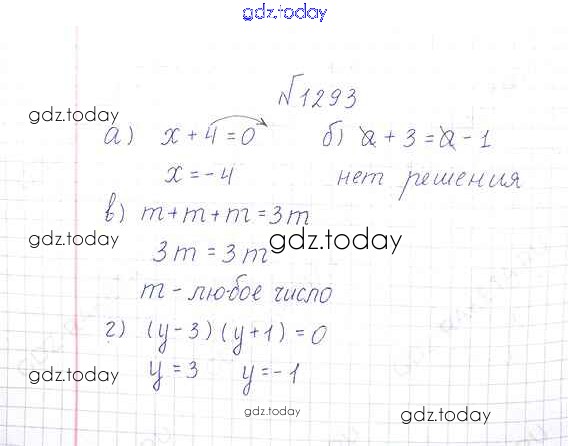 gdz.today
№1293
gdz.today
а) x + 4 = 0 б) a + 3 = a - 1
x = -4 нет решения
в) m + m + m = 3m
gdz.today gdz.today
3m = 3m
m - любое число
г) (y - 3)(y + 1) = 0
gdz.today y = 3 y = -1
gdz.today gdz.today